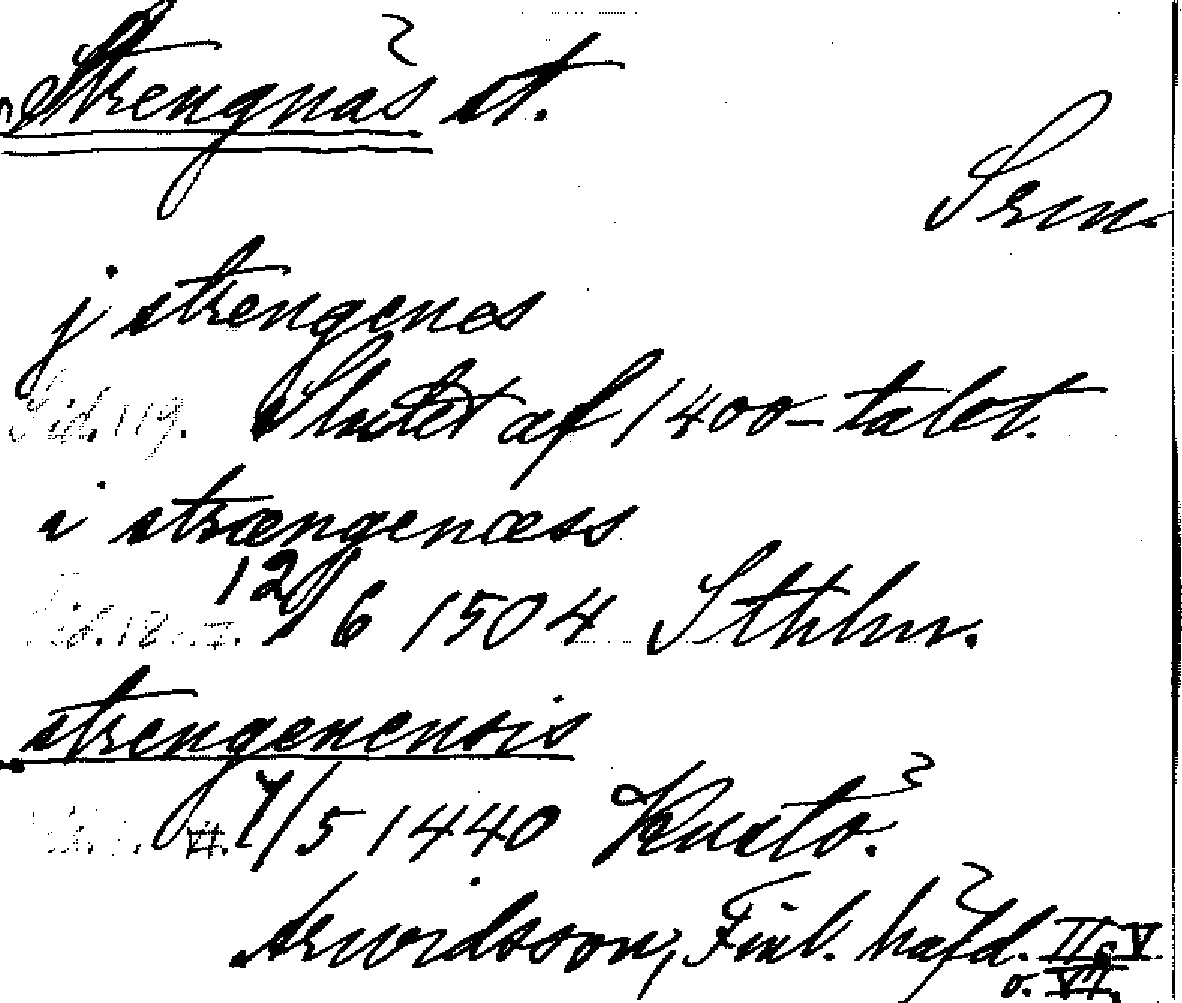 Strengnäs st.
Srm.
j strengenes
Sid. 119. Slutet af 1400-talet.
i strængenæss
12/6 1504 Sthlm.
strengenensis
1/5 1440 Kustö.
Arwidsson, Finl. häfd. II, V
o. VII.